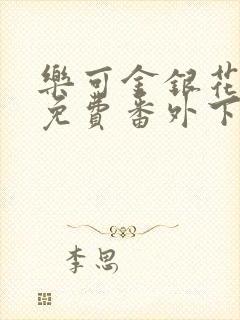 樂可金銀花
免費番外下
李思